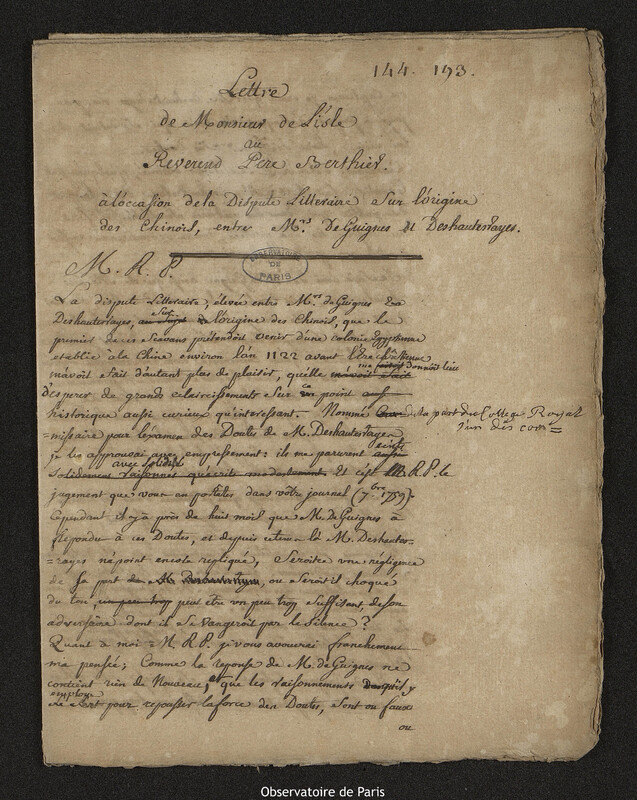 144. 193.
Lettre
de Monsieur de L'isle
au
Reverend Pere Berthier.
à l'occasion de la Dispute Litteraire sur l'origine
des Chinois, entre Mrs. De Guignes et Deshautesrayes.
OBSERVATOIRE DE PARIS
M. R. P.
La dispute Litteraire, élevée entre Mrs. de Guignes &
Deshautesrayes, au sujet de sur l'origine des Chinois, que le
premier de ces Sçavans prétendoit venir d'une colonie Egyptienne
établie à la Chine environ l'an 1122 avant l'Ere chrétienne
m'avoit fait d'autant plus de plaisir, qu'elle m'avoit fait me donnoit lieu
d'esperer de grands eclaircissements sur un point
historique aussi curieux qu'interessant. Nommé de la part du College Royal
l'un des com=
missaire pour l'examen des Doutes de M. Deshautesrayes
je les approuvai avec empressement: ils me parurent ecrits
avec solidité
solidement raisonnés qu'écrits modestement. Et c'est M. R. P. le
jugement que vous en portates dans vôtre journal (7.bre 1759)
Cependant il y a près de huit mois que M. De Guignes à
répondu à ces Doutes, et depuis ce tems là M. Deshautes=
=rayes n'a point encore repliqué, Seroit ce une négligence
de sa part de M. Deshautesrayes, ou seroit il choqué
du ton, un peu trop peut être un peu trop suffisant, de son
adversaire dont il se vangeroit par le silence?
Quant à moi M. R. P. je vous avouerai franchement
ma pensée; Comme la reponse de M. de Guignes ne
contient rien de Nouveau, et que les raisonnements qu'il y
employe
se sert pour repousser la force des Doutes, sont ou faux
ou
Observatoire de Paris